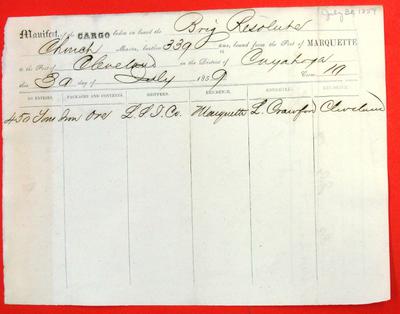 July 30 1859
Manifest of the CARGO laden on board the Brig Resolute
Church Master, burthen 339 tons, bound from the Port of MARQUETTE
to the Port of Cleveland in the District of Cuyahoga
this 30 day of July 1859 Crew 10
NO. ENTRIES. PACKAGES AND CONTENTS. SHIPPERS. RESIDENCE. CONSIGNEES. RESIDENCE.
450 Tons Iron Ore L. S. I. Co. Marquette L. Crawford Cleveland